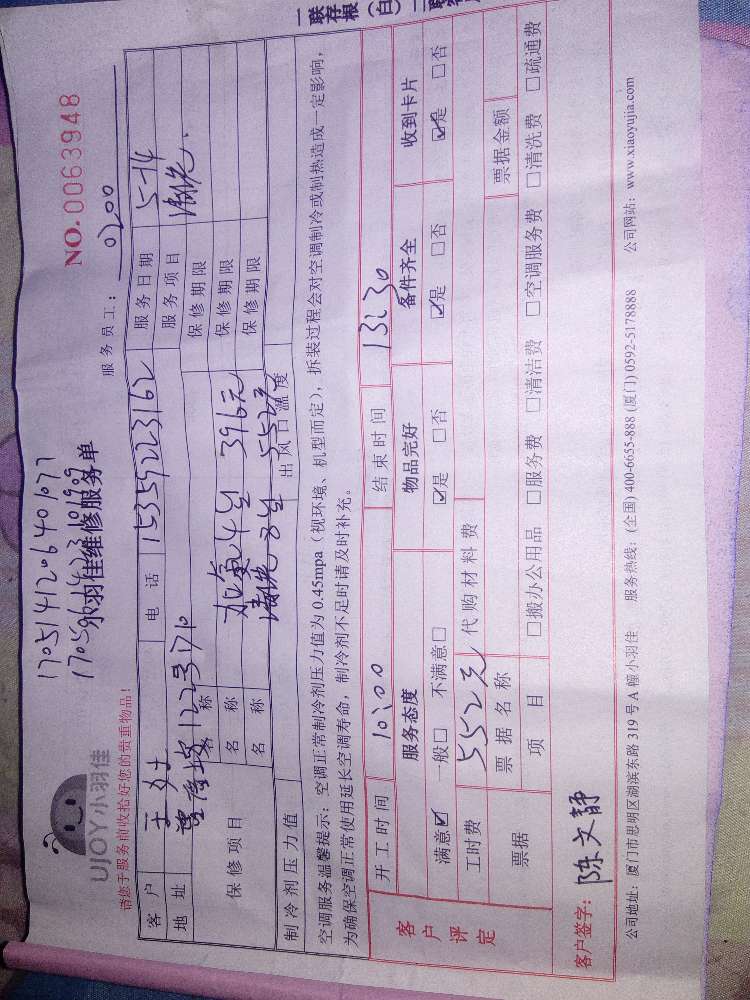 一联存根(白)二联
UJOY小羽佳
17051412064077
永羽佳维修服务单
NO.0063948
请您于服务前收拾好您的贵重物品!
服务员工: 0200
客户 王女士 电话 15359223162 服务日期 5-14
地址 1223#710 服务项目 清洗
保修项目
名称 保修期限
名称 加氟4台 396元 保修期限
名称 清洗8台 552元 保修期限
制冷剂压力值 出风口温度
空调服务温馨提示:空调正常制冷剂压力值为 0.45mpa(视环境、机型而定),拆装过程会对空调制冷或制热造成一定影响,
为确保空调正常使用延长空调寿命,制冷剂不足时请及时补充。
客户评定
开工时间 10:00 结束时间 13:30
服务态度 物品完好 备件齐全 收到卡片
满意☑ 一般□ 不满意□ ☑是 □否 ☑是 □否 ☑是 □否
工时费 552元 代购材料费
票据 票据名称 票据金额
项目 □搬办公用品 □服务费 □清洁费 □空调服务费 □清洗费 □疏通费
客户签字: 陈文静
公司地址:厦门市思明区湖滨东路 319 号 A 幢小羽佳 服务热线:(全国) 400-6655-888 (厦门) 0592-5178888 公司网站:www.xiaoyujia.com